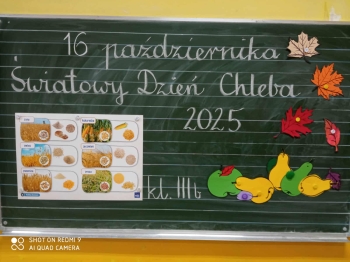 16 października
Światowy Dzień Chleba
2025
kl. IIIb
SHOT ON REDMI 9
AI QUAD CAMERA